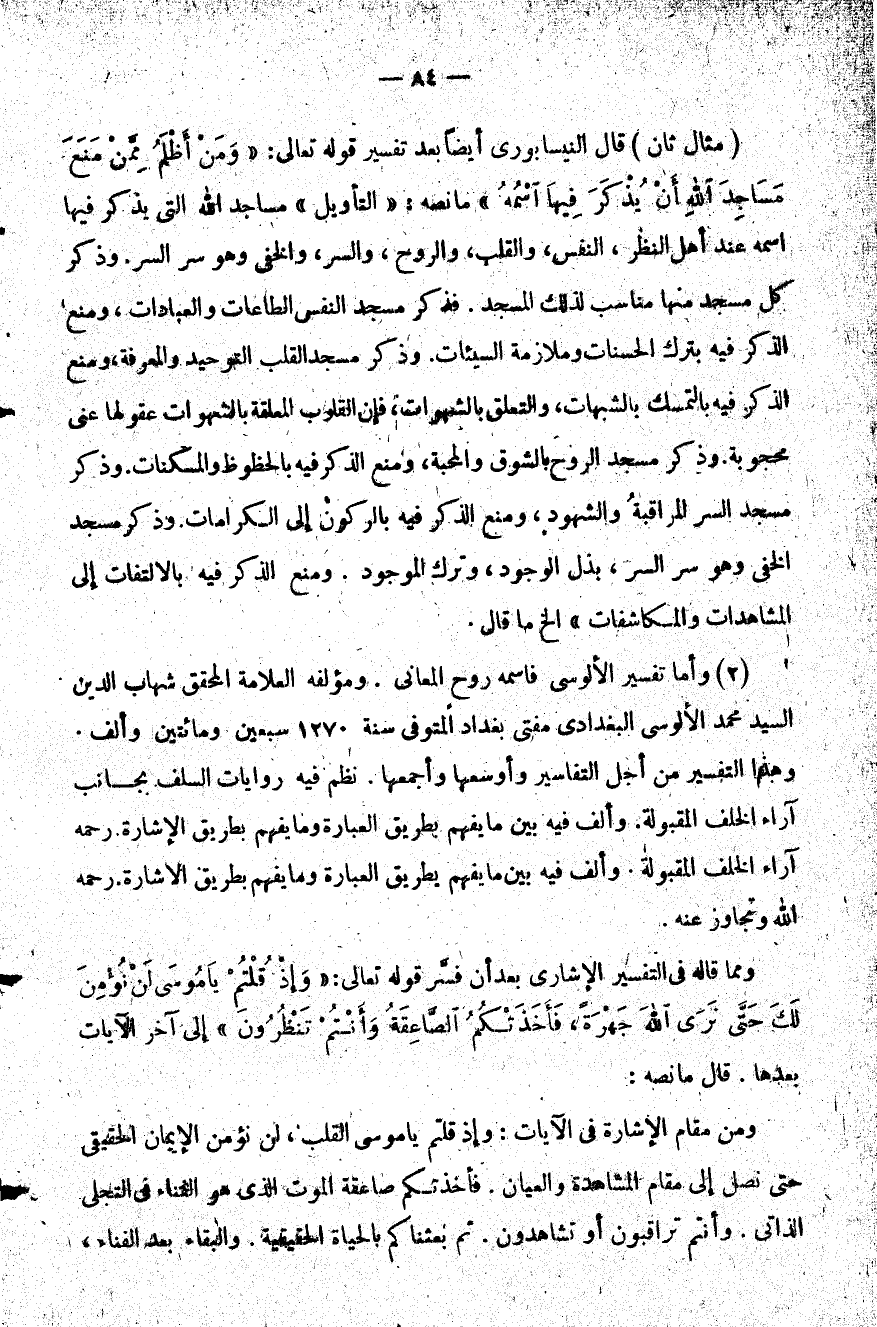 — ٨٤ —
( مثال ثان ) قال النيسابورى أيضاً بعد تفسير قوله تعالى: « وَمَنْ أَظْلَمُ مِمَّنْ مَنَعَ
مَسَاجِدَ ٱللهِ أَنْ يُذْكَرَ فِيهَا ٱسْمُهُ » مانصه : « التأويل » مساجد الله التى يذكر فيها
اسمه عند أهل النظر ، النفس، والقلب، والروح ، والسر، والخفى وهو سر السر. وذكر
كل مسجد منها مناسب لذلك المسجد . فذكر مسجد النفس الطاعات والعبادات ، ومنع
الذكر فيه بترك الحسنات وملازمة السيئات. وذكر مسجد القلب التوحيد والمعرفة، ومنع
الذكر فيه بالتمسك بالشبهات، والتعلق بالشهوات، فإن القلوب المعلقة بالشهوات عقولها عنى
محجوبة. وذكر مسجد الروح بالشوق والمحبة، ومنع الذكر فيه بالحظوظ والمسكنات. وذكر
مسجد السر المراقبة والشهود، ومنع الذكر فيه بالركون إلى الكرامات. وذكر مسجد
الخفى وهو سر السر ، بذل الوجود ، وترك الموجود . ومنع الذكر فيه بالالتفات إلى
المشاهدات والمكاشفات » الخ ما قال .
(٢) وأما تفسير الألوسى فاسمه روح المعانى . ومؤلفه العلامة المحقق شهاب الدين
السيد محمد الألوسى البغدادى مفتى بغداد المتوفى سنة ١٢٧٠ سبعين ومائتين وألف .
وهذا التفسير من أجل التفاسير وأوسعها وأجمعها . نظم فيه روايات السلف بجانب
آراء الخلف المقبولة. وألف فيه بين مايفهم بطريق العبارة ومايفهم بطريق الإشارة. رحمه
آراء الخلف المقبولة . وألف فيه بين مايفهم بطريق العبارة ومايفهم بطريق الاشارة. رحمه
الله وتجاوز عنه .
ومما قاله فى التفسير الإشارى بعد أن فسَّر قوله تعالى: « وَإِذْ قُلْتُمْ يَامُوسَى لَنْ نُؤْمِنَ
لَكَ حَتَّى نَرَى ٱللهَ جَهْرَةً، فَأَخَذَتْكُمُ ٱلصَّاعِقَةُ وَأَنْتُمْ تَنْظُرُونَ » إلى آخر الآيات
بعدها . قال مانصه :
ومن مقام الإشارة فى الآيات : وإذ قلتم ياموسى القلب ، لن نؤمن الإيمان الحقيقى
حتى نصل إلى مقام المشاهدة والعيان . فأخذتكم صاعقة الموت الذى هو الفناء فى التجلى
الذاتى . وأنتم تراقبون أو تشاهدون . ثم بعثناكم بالحياة الحقيقية . والبقاء بعد الفناء ،